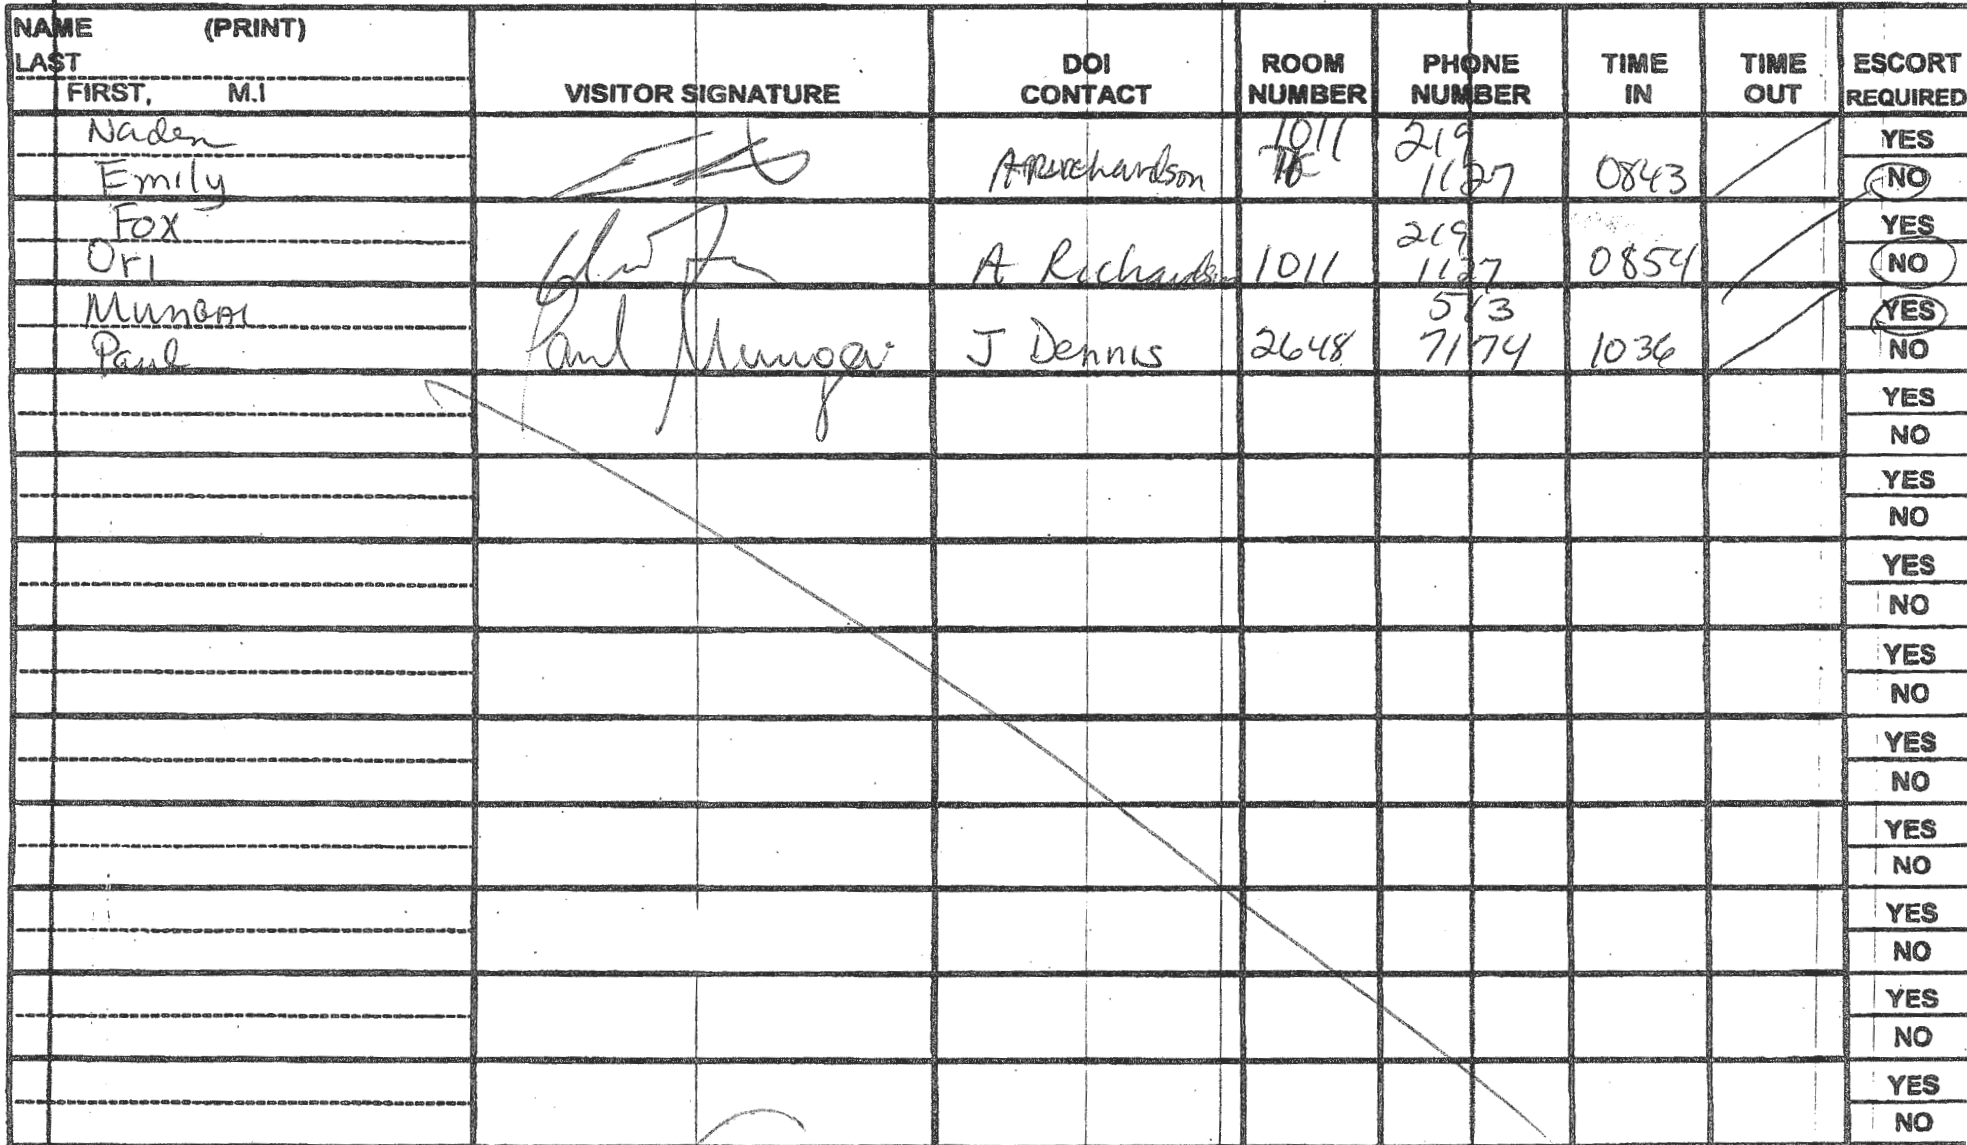 NAME (PRINT)
LAST
FIRST, M.I
VISITOR SIGNATURE
DOI CONTACT
ROOM NUMBER
PHONE NUMBER
TIME IN
TIME OUT
ESCORT REQUIRED
Naden
Emily
A Richardson
1011
219
1127
0843
YES
NO
Fox
Ori
A Richardson
1011
219
1127
0854
YES
NO
Mungai
Paul
Paul Mungai
J Dennis
2648
513
7174
1036
YES
NO
YES
NO
YES
NO
YES
NO
YES
NO
YES
NO
YES
NO
YES
NO
YES
NO
YES
NO